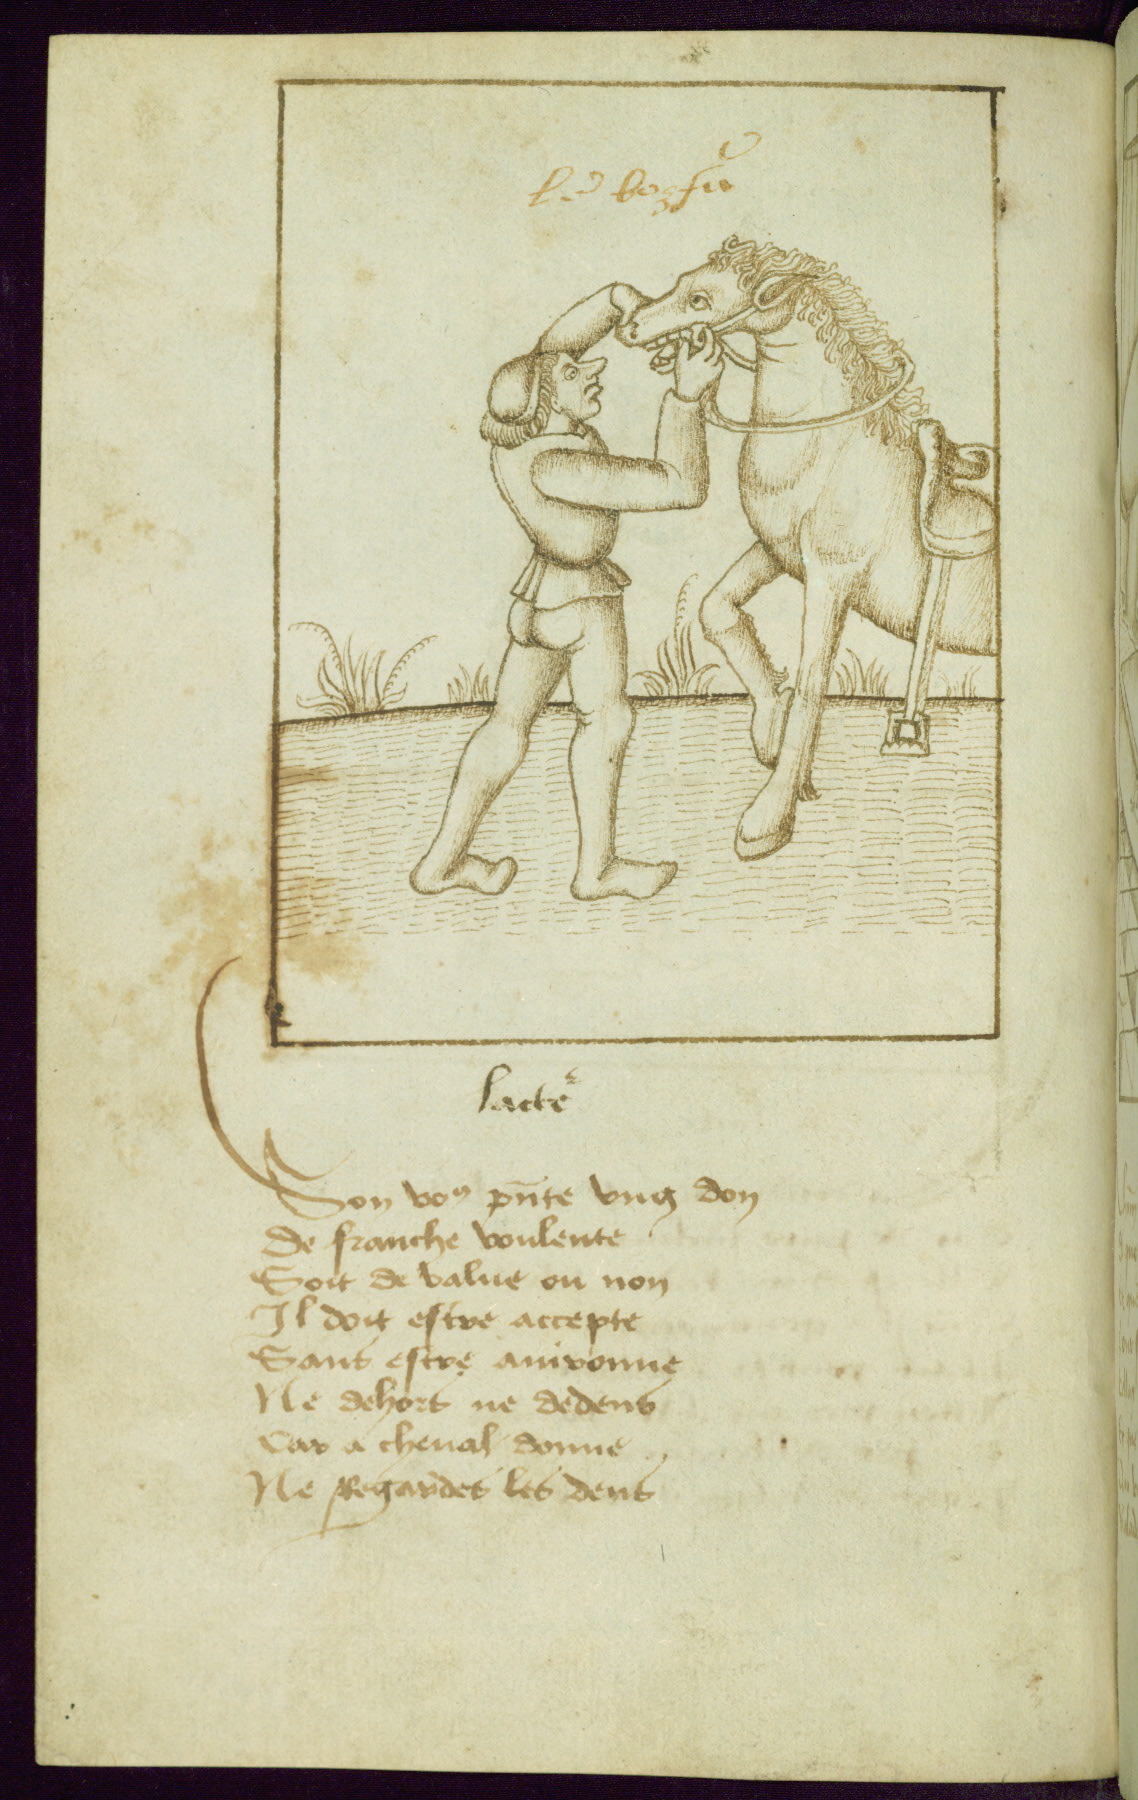 lacteʳ
Son voꝰ pn̄te vng don
De franche voulente
Soit de value ou non
Il doit estre accepte
Sans estre auironne
Ne dehors ne dedens
Car a cheual donne
Ne Regardes les dens